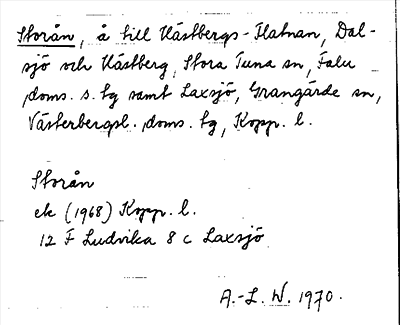 Storån, å till Hästbergs-Flatnan, Dal-
sjö och Hästberg, Stora Tuna sn, Falu
doms. s. tg samt Laxsjö, Grangärde sn,
Västerbergsl. doms. tg, Kopp. l.
Storån
ek (1968) Kopp. l.
12 F Ludvika 8 c Laxsjö
A.-L. W. 1970.